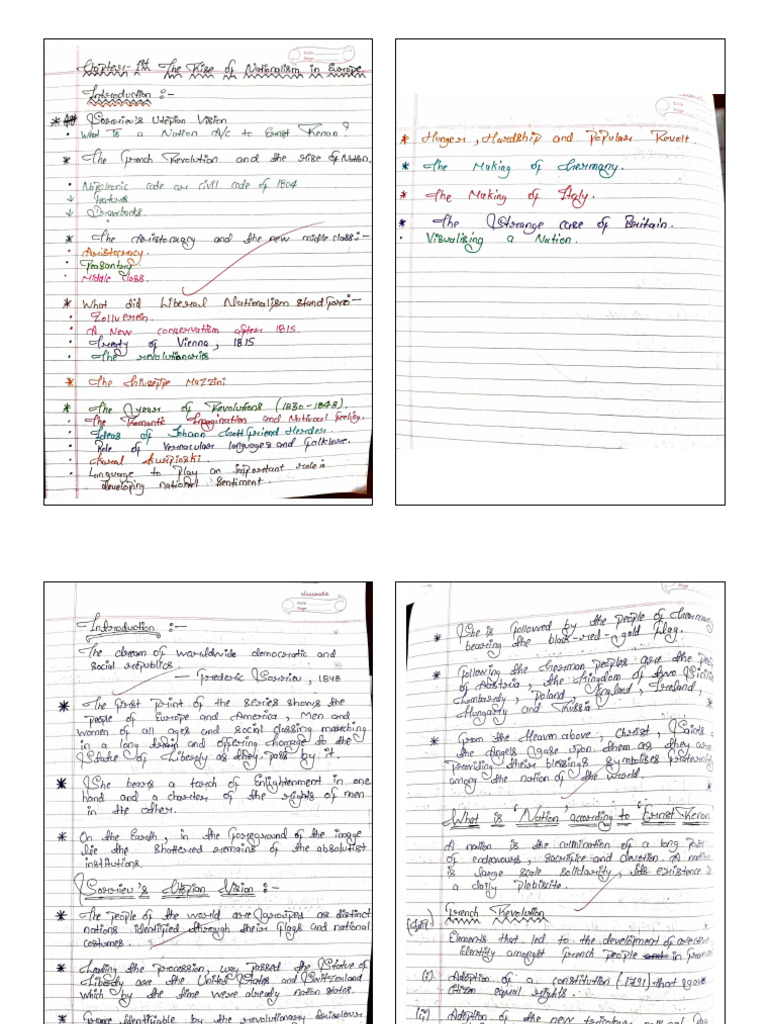 Chapter-1st The Rise of Nationalism in Europe
Introduction :-
* Sorrieu's Utopian Vision
• What Is a Nation A/c to Ernst Renan?
* The French Revolution and the rise of Nation.
• Napoleonic code or civil code of 1804
↓ Features
↓ Drawbacks.
* The Aristocracy and the new middle class:-
• Aristocracy.
• Peasantry
• Middle class.
* What did Liberal Nationalism stand for:-
• Zollverein.
• A New conservatism after 1815.
• Treaty of Vienna, 1815
• The revolutionaries
* The Giuseppe Mazzini
* The year of Revolutions (1830-1848).
• The Romantic Imagination and National feeling.
• Ideas of Johann Gottfriend Herder.
• Role of Vernacular languages and folklore.
• Karal Kurpinski.
• Language to play an important role in
developing national sentiment.
Date
Page
* Hunger, Hardship and Popular Revolt.
* The Making of Germany.
* The Making of Italy.
* The Strange case of Britain.
• Visualising a Nation.
classmate
Date
Page
Introduction :-
The dream of worldwide democratic and
social republics
— Frederic Sorrieu, 1848
* The first print of the series shows the
people of Europe and America, Men and
women of all ages and social classing marching
in a long and offering homage to the
Statue of Liberty as they pass by it.
* She bears a torch of Enlightenment in one
hand and a charter of the rights of men
in the other.
* On the Earth, in the foreground of the image
lie the shattered remains of the absolutist
institutions.
Sorrieu's Utopian Vision :-
* The people of the world are Grouped as distinct
nations identified through their flags and national
costumes.
* Leading the procession, way passed the Statue of
Liberty are the United States and Switzerland
which by the time were already nation states.
* France identifiable by the revolutionary
* She is followed by the people of Germany
bearing the black-red-gold flag.
* Following the German peoples are the
of Austria, the Kingdom of two
Lombardy, Poland, England, Ireland,
Hungary and Russia.
* From the Heaven above, Christ, Saints
the Angels gaze upon them as they
providing their blessings symbolises
among the nation of the world.
What is 'Nation' according to 'Ernst Renan
A nation is the culmination of a long
of endeavours, sacrifice and devotion. A nation
is large scale solidarity, its existence is
a daily plebiscite.
French Revolution
Elements that led to the development of
identity amongst French people in
(i). Adoption of a constitution (1791) that gave
citizen equal rights.
(ii) Adoption of the new